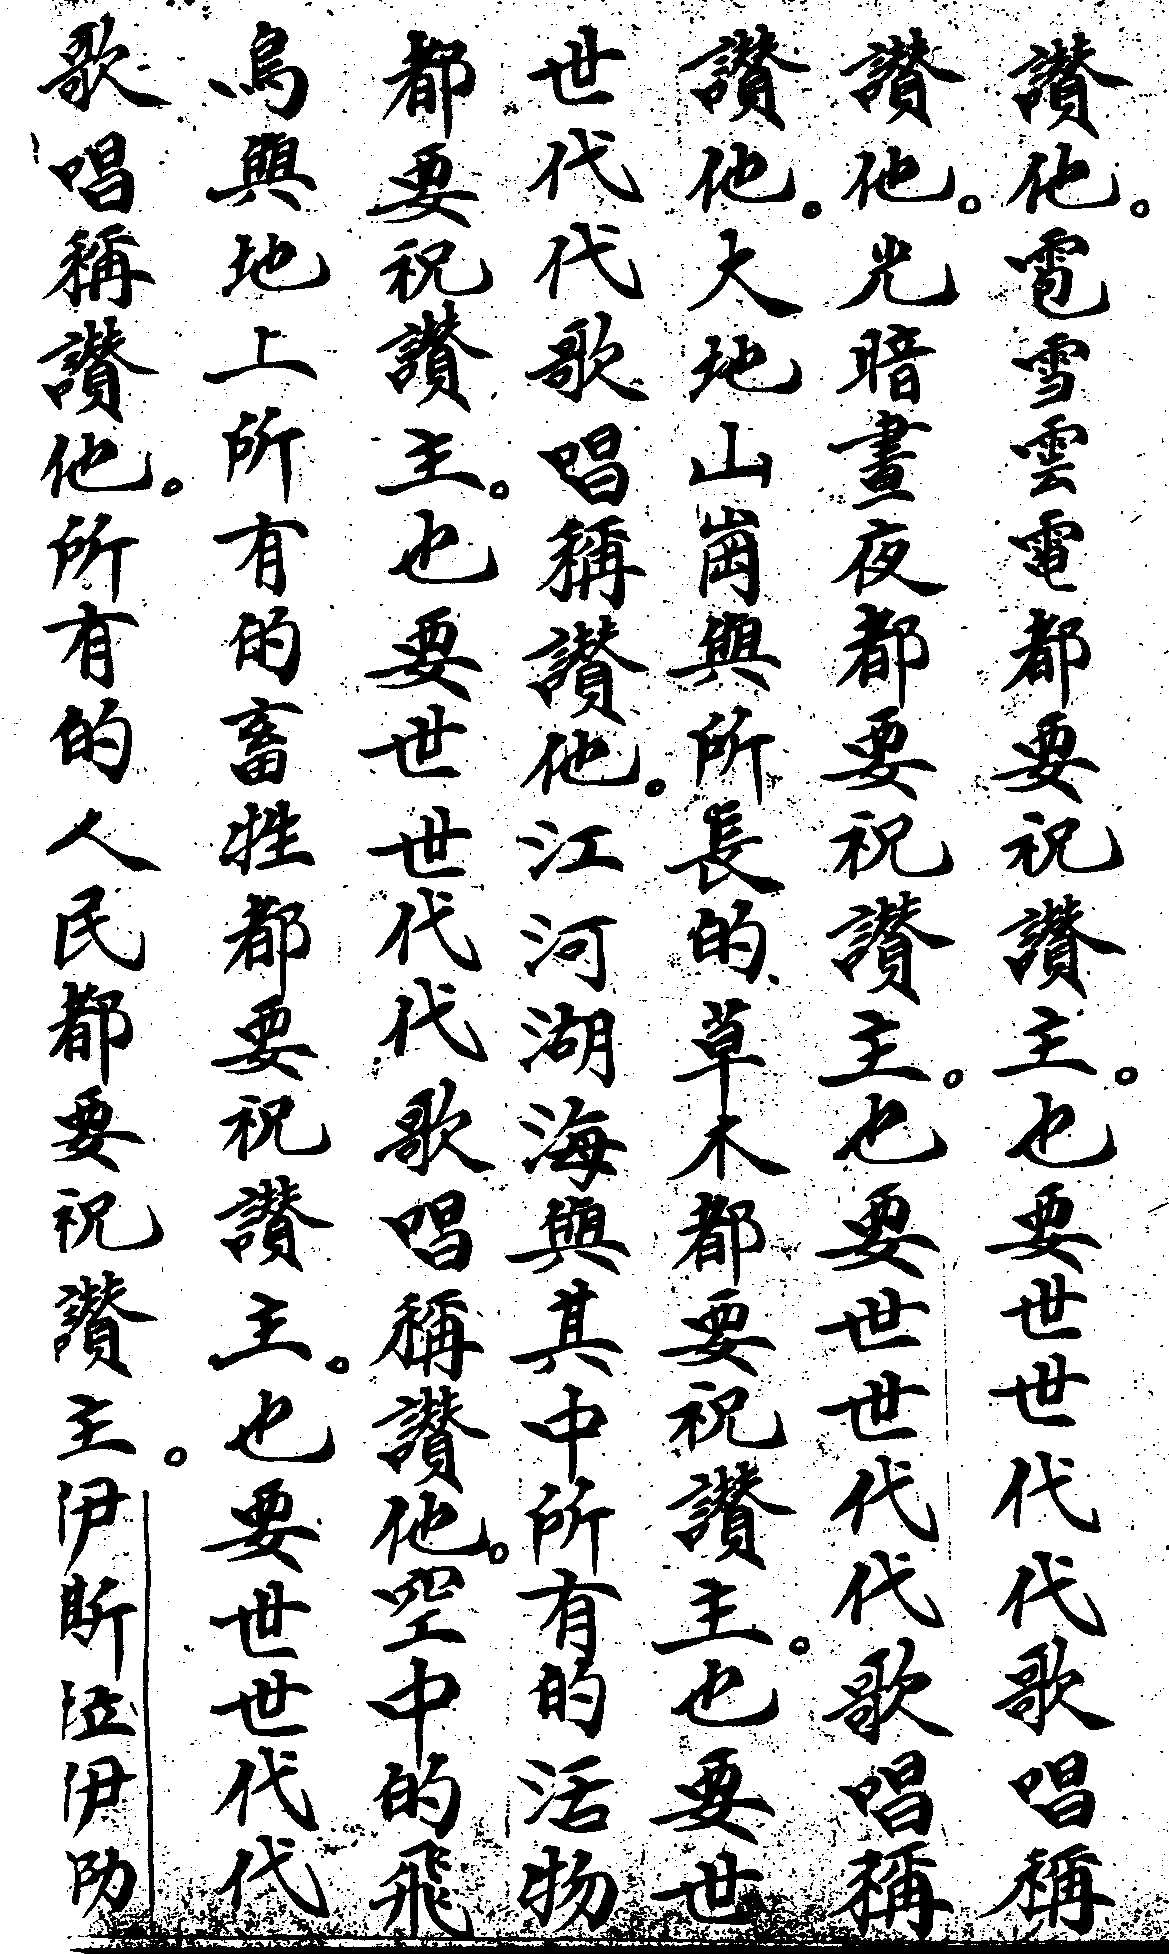 讚他。雹雪雲電都要祝讚主。也要世世代代歌唱稱
讚他。光暗晝夜都要祝讚主。也要世世代代歌唱稱
讚他。大地山崗與所長的草木都要祝讚主。也要世
世代代歌唱稱讚他。江河湖海與其中所有的活物
都要祝讚主。也要世世代代歌唱稱讚他。空中的飛
鳥與地上所有的畜牲都要祝讚主。也要世世代代
歌唱稱讚他。所有的人民都要祝讚主。伊斯拉伊勒